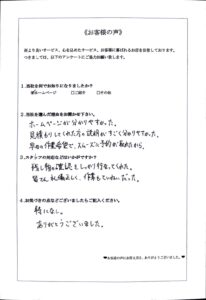 《お客様の声》
より良いサービス、心を込めたサービス、お客様に喜ばれるお店を目指しております。
つきましては、以下のアンケートにご協力お願い致します。
1.当社を何でお知りになりましたか？
☑ホームページ □ご紹介 □その他
2.当社を選んだ理由をお聞かせ下さい。
ホームページが分かりやすかった。
見積もりしてくれた方の説明がすごく分かりやすかった。
早めの作業希望で、スムーズに予約が取れたから。
3.スタッフの対応などはいかがですか？
残し物の確認をしっかり行なってくれた。
皆さん礼儀正しく、作業もていねいだった。
4.お気づきの点などございましたらご記入ください。
特になし。
ありがとうございました。
ありがとうございました。♥